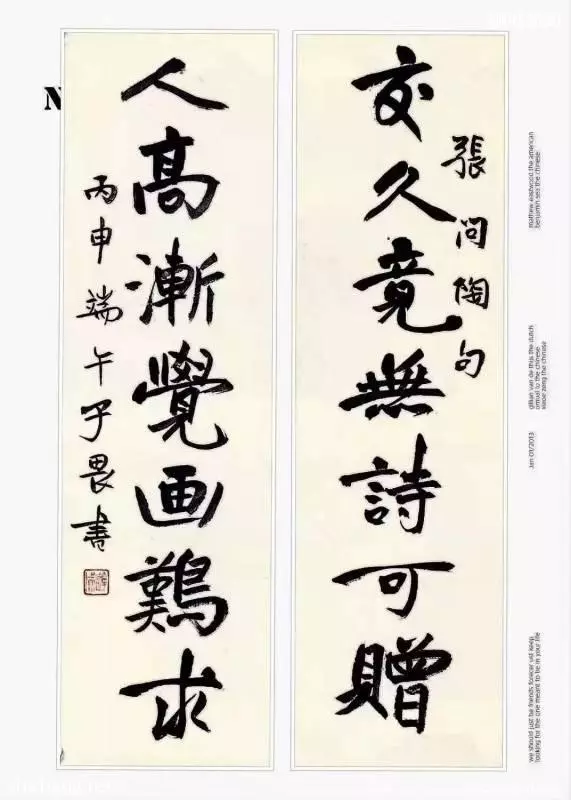 交久竟無詩可贈
張問陶句
人高漸覺画難求
丙申端午子畏書
N
matthew eastwood the american
benjamin seis the chinese
gillian van de thijs the dutch
Jan 01/2013
we should just be friends forever
looking for the one meant to be in your life